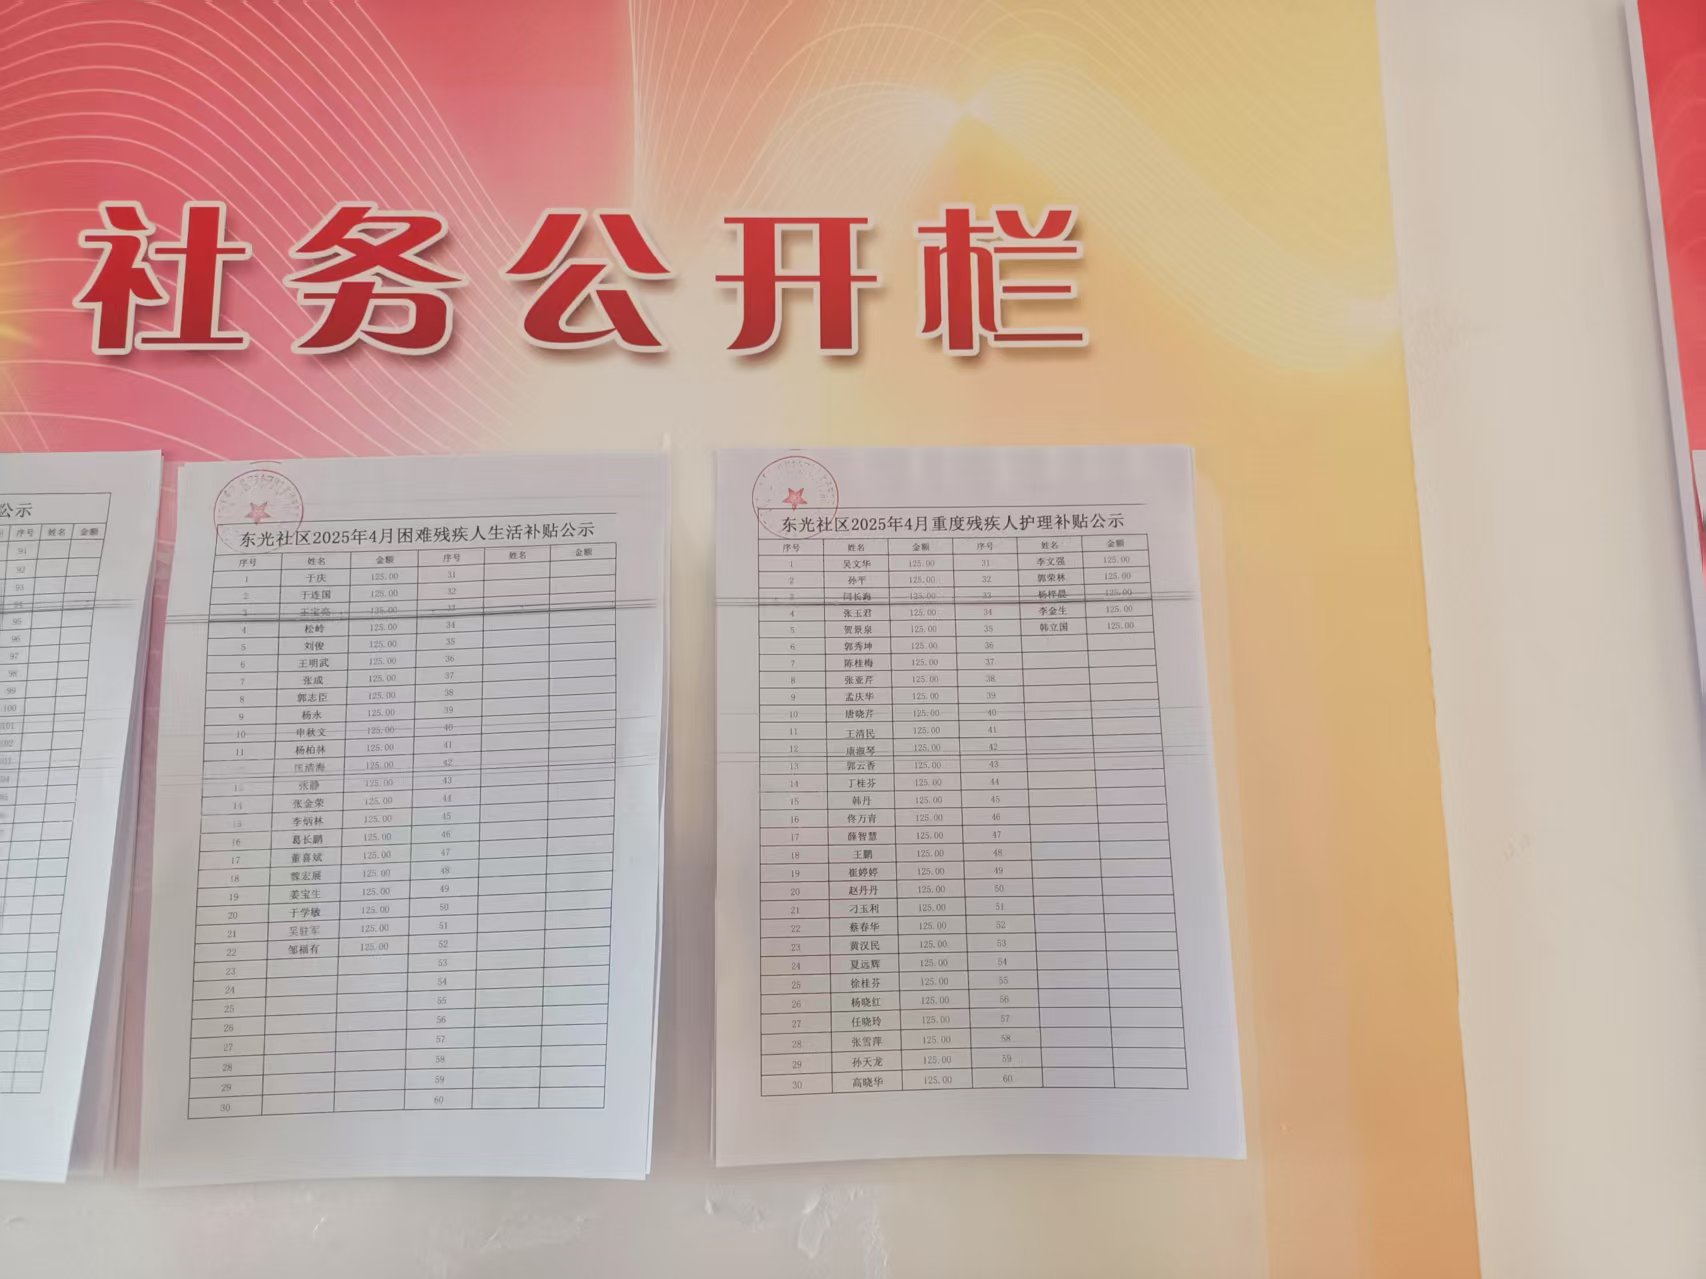 社务公开栏
公示
序号 姓名 金额
91
92
93
94
95
96
97
98
99
100
东光社区2025年4月困难残疾人生活补贴公示
序号 姓名 金额 序号 姓名 金额
1 于庆 125.00 31
2 于连国 125.00 32
3 王宝亮 125.00 33
4 松岭 125.00 34
5 刘俊 125.00 35
6 王明武 125.00 36
7 张成 125.00 37
8 郭志臣 125.00 38
9 杨永 125.00 39
10 申秋文 125.00 40
11 杨柏林 125.00 41
浩海 125.00 42
13 张静 125.00 43
14 张金荣 125.00 44
15 李炳林 125.00 45
16 葛长鹏 125.00 46
17 董喜斌 125.00 47
18 魏宏展 125.00 48
19 姜宝生 125.00 49
20 于学敏 125.00 50
21 吴驻军 125.00 51
22 邹福有 125.00 52
23 53
24 54
25 55
26 56
27 57
28 58
29 59
30 60
东光社区2025年4月重度残疾人护理补贴公示
序号 姓名 金额 序号 姓名 金额
1 吴文华 125.00 31 李文强 125.00
2 孙平 125.00 32 郭荣林 125.00
3 闫长海 125.00 33 杨梓晨 125.00
4 张玉君 125.00 34 李金生 125.00
5 贺景泉 125.00 35 韩立国 125.00
6 郭秀坤 125.00 36
7 陈桂梅 125.00 37
8 张亚芹 125.00 38
9 孟庆华 125.00 39
10 唐晓芹 125.00 40
11 王清民 125.00 41
12 康淑琴 125.00 42
13 郭云香 125.00 43
14 丁桂芬 125.00 44
15 韩丹 125.00 45
16 佟万青 125.00 46
17 薛智慧 125.00 47
18 王鹏 125.00 48
19 崔婷婷 125.00 49
20 赵丹丹 125.00 50
21 刁玉利 125.00 51
22 蔡春华 125.00 52
23 黄汉民 125.00 53
24 夏远辉 125.00 54
25 徐桂芬 125.00 55
26 杨晓红 125.00 56
27 任晓玲 125.00 57
28 张雪萍 125.00 58
29 孙天龙 125.00 59
30 高晓华 125.00 60